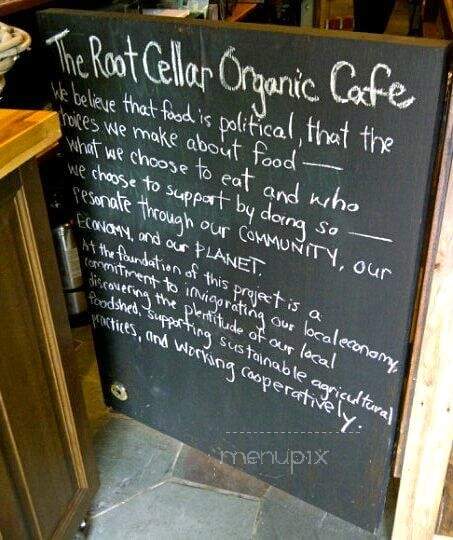 The Root Cellar Organic Cafe
We believe that food is political, that the
choices we make about food —
what we choose to eat and who
we choose to support by doing so —
resonate through our COMMUNITY, our
ECONOMY, and our PLANET.
At the foundation of this project is a
commitment to invigorating our local economy,
discovering the plentitude of our local
foodshed, supporting sustainable agricultural
practices, and working cooperatively.
menupix